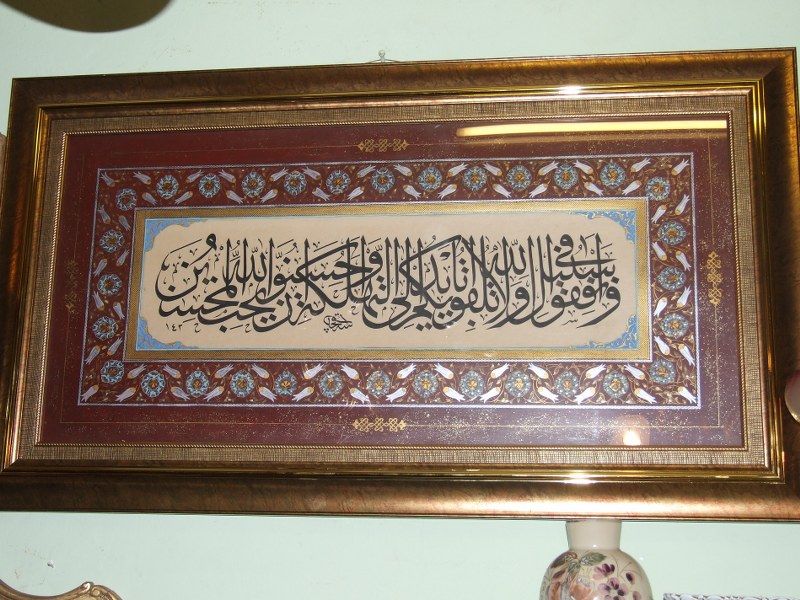 وانفقوا في سبيل الله ولا تلقوا بايديكم الى التهلكة واحسنوا ان الله يحب المحسنين